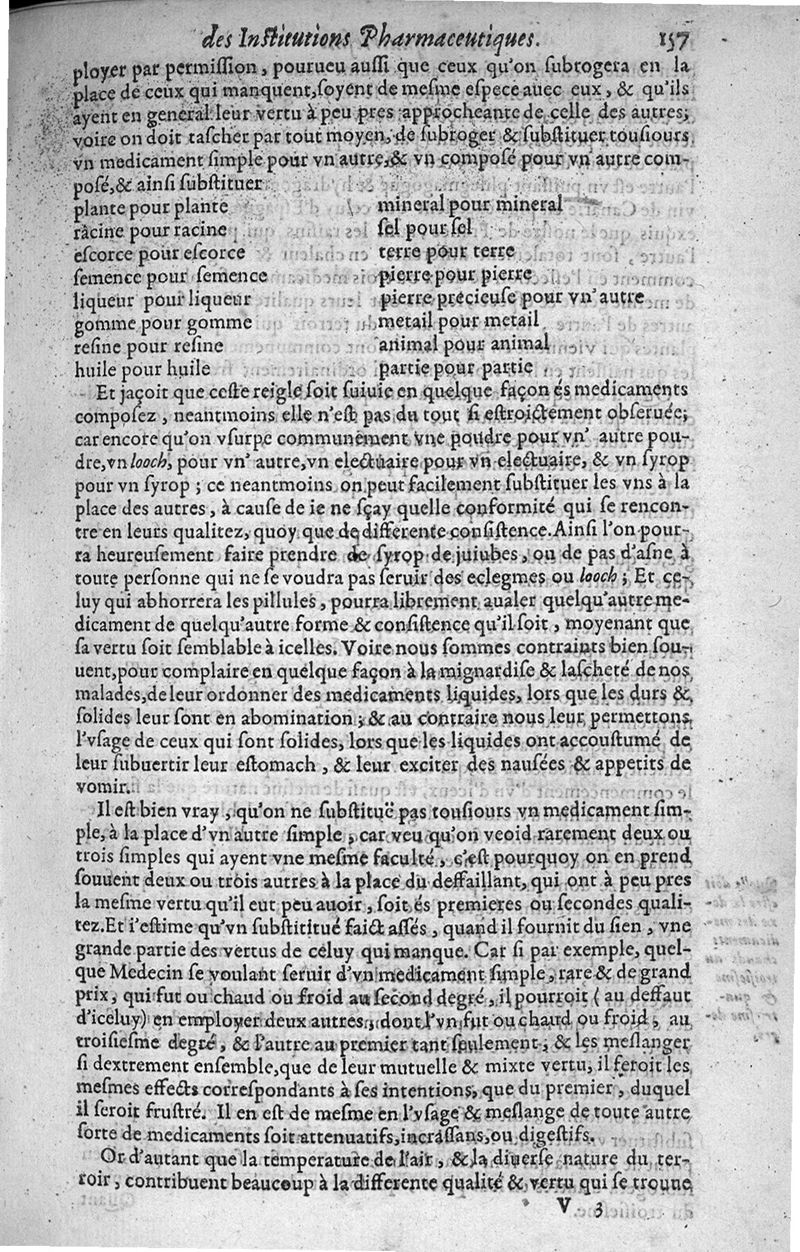 des Institutions Pharmaceutiques. 157
ployer par permission, pourueu aussi que ceux qu'on subrogera en la
place de ceux qui manquent, soyent de mesme espece auec eux, & qu'ils
ayent en general leur vertu à peu pres approcheante de celle des autres;
voire on doit tascher par tout moyen, de subroger & substituer tousiours
vn medicament simple pour vn autre, & vn composé pour vn' autre com-
posé, & ainsi substituer
plante pour plante
racine pour racine
escorce pour escorce
semence pour semence
liqueur pour liqueur
gomme pour gomme
resine pour resine
huile pour huile
mineral pour mineral
sel pour sel
terre pour terre
pierre pour pierre
pierre precieuse pour vn' autre
metail pour metail
animal pour animal
partie pour partie
Et jaçoit que ceste reigle soit suiuie en quelque façon és medicaments
composez, neantmoins elle n'est pas du tout si estroictement obseruée;
car encore qu'on vsurpe communément vne poudre pour vn' autre pou-
dre, vn looch, pour vn' autre, vn electuaire pour vn electuaire, & vn syrop
pour vn syrop; ce neantmoins on peut facilement substituer les vns à la
place des autres, à cause de ie ne sçay quelle conformité qui se rencon-
tre en leurs qualitez, quoy que de differente consistence. Ainsi l'on pour-
ra heureusement faire prendre de syrop de juiubes, ou de pas d'asne à
toute personne qui ne se voudra pas seruir des eclegmes ou looch; Et ce-
luy qui abhorrera les pillules, pourra librement aualer quelqu'autre me-
dicament de quelqu'autre forme & consistence qu'il soit, moyenant que
sa vertu soit semblable à icelles. Voire nous sommes contraints bien sou-
uent, pour complaire en quelque façon à la mignardise & lascheté de nos
malades, de leur ordonner des medicaments liquides, lors que les durs &
solides leur sont en abomination; & au contraire nous leur permettons
l'vsage de ceux qui sont solides, lors que les liquides ont accoustumé de
leur subuertir leur estomach, & leur exciter des nausées & appetits de
vomir.
Il est bien vray, qu'on ne substituë pas tousiours vn medicament sim-
ple, à la place d'vn autre simple, car veu qu'on veoid rarement deux ou
trois simples qui ayent vne mesme faculté, c'est pourquoy on en prend
souuent deux ou trois autres à la place du deffaillant, qui ont à peu pres
la mesme vertu qu'il eut peu auoir, soit és premieres ou secondes quali-
tez. Et i'estime qu'vn substititué faict assés, quand il fournit du sien, vne
grande partie des vertus de celuy qui manque. Car si par exemple, quel-
que Medecin se voulant seruir d'vn medicament simple, rare & de grand
prix, qui fut ou chaud ou froid au second degré, il pourroit (au deffaut
d'iceluy) en employer deux autres, dont l'vn fut ou chaud ou froid, au
troisiesme degré, & l'autre au premier tant seulement, & les meslanger
si dextrement ensemble, que de leur mutuelle & mixte vertu, il feroit les
mesmes effects correspondants à ses intentions, que du premier, duquel
il seroit frustré. Il en est de mesme en l'vsage & meslange de toute autre
sorte de medicaments soit attenuatifs, incrassans, ou digestifs.
Or d'autant que la temperature de l'air, & la diuerse nature du ter-
roir, contribuent beaucoup à la differente qualité & vertu qui se trouue
V 3